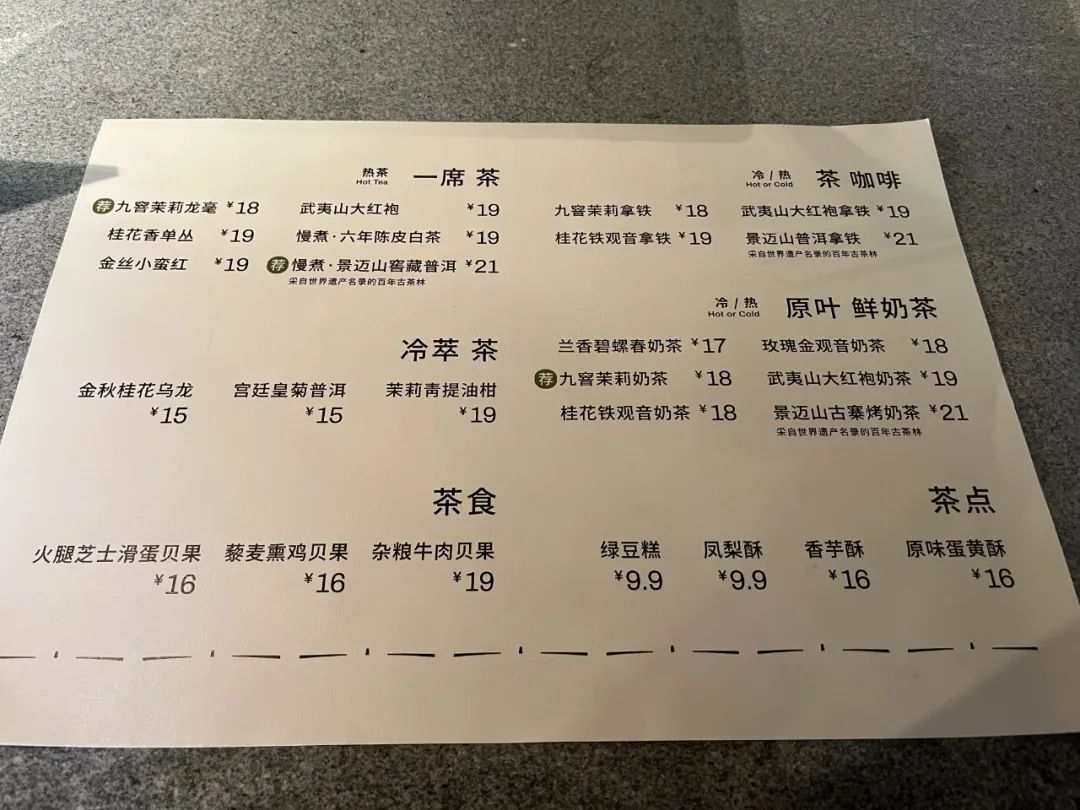 热茶
Hot Tea
一席 茶
荐 九窨茉莉龙毫 ¥18
武夷山大红袍 ¥19
桂花香单丛 ¥19
慢煮·六年陈皮白茶 ¥19
金丝小蛮红 ¥19
荐 慢煮·景迈山窖藏普洱 ¥21
采自世界遗产名录的百年古茶林
冷萃 茶
金秋桂花乌龙 宫廷皇菊普洱 茉莉青提油柑
¥15 ¥15 ¥19
茶食
火腿芝士滑蛋贝果 藜麦熏鸡贝果 杂粮牛肉贝果
¥16 ¥16 ¥19
冷/热
Hot or Cold
茶 咖啡
九窨茉莉拿铁 ¥18
武夷山大红袍拿铁 ¥19
桂花铁观音拿铁 ¥19
景迈山普洱拿铁 ¥21
采自世界遗产名录的百年古茶林
冷/热
Hot or Cold
原叶 鲜奶茶
兰香碧螺春奶茶 ¥17
玫瑰金观音奶茶 ¥18
荐 九窨茉莉奶茶 ¥18
武夷山大红袍奶茶 ¥19
桂花铁观音奶茶 ¥18
景迈山古寨烤奶茶 ¥21
采自世界遗产名录的百年古茶林
茶点
绿豆糕 凤梨酥 香芋酥 原味蛋黄酥
¥9.9 ¥9.9 ¥16 ¥16